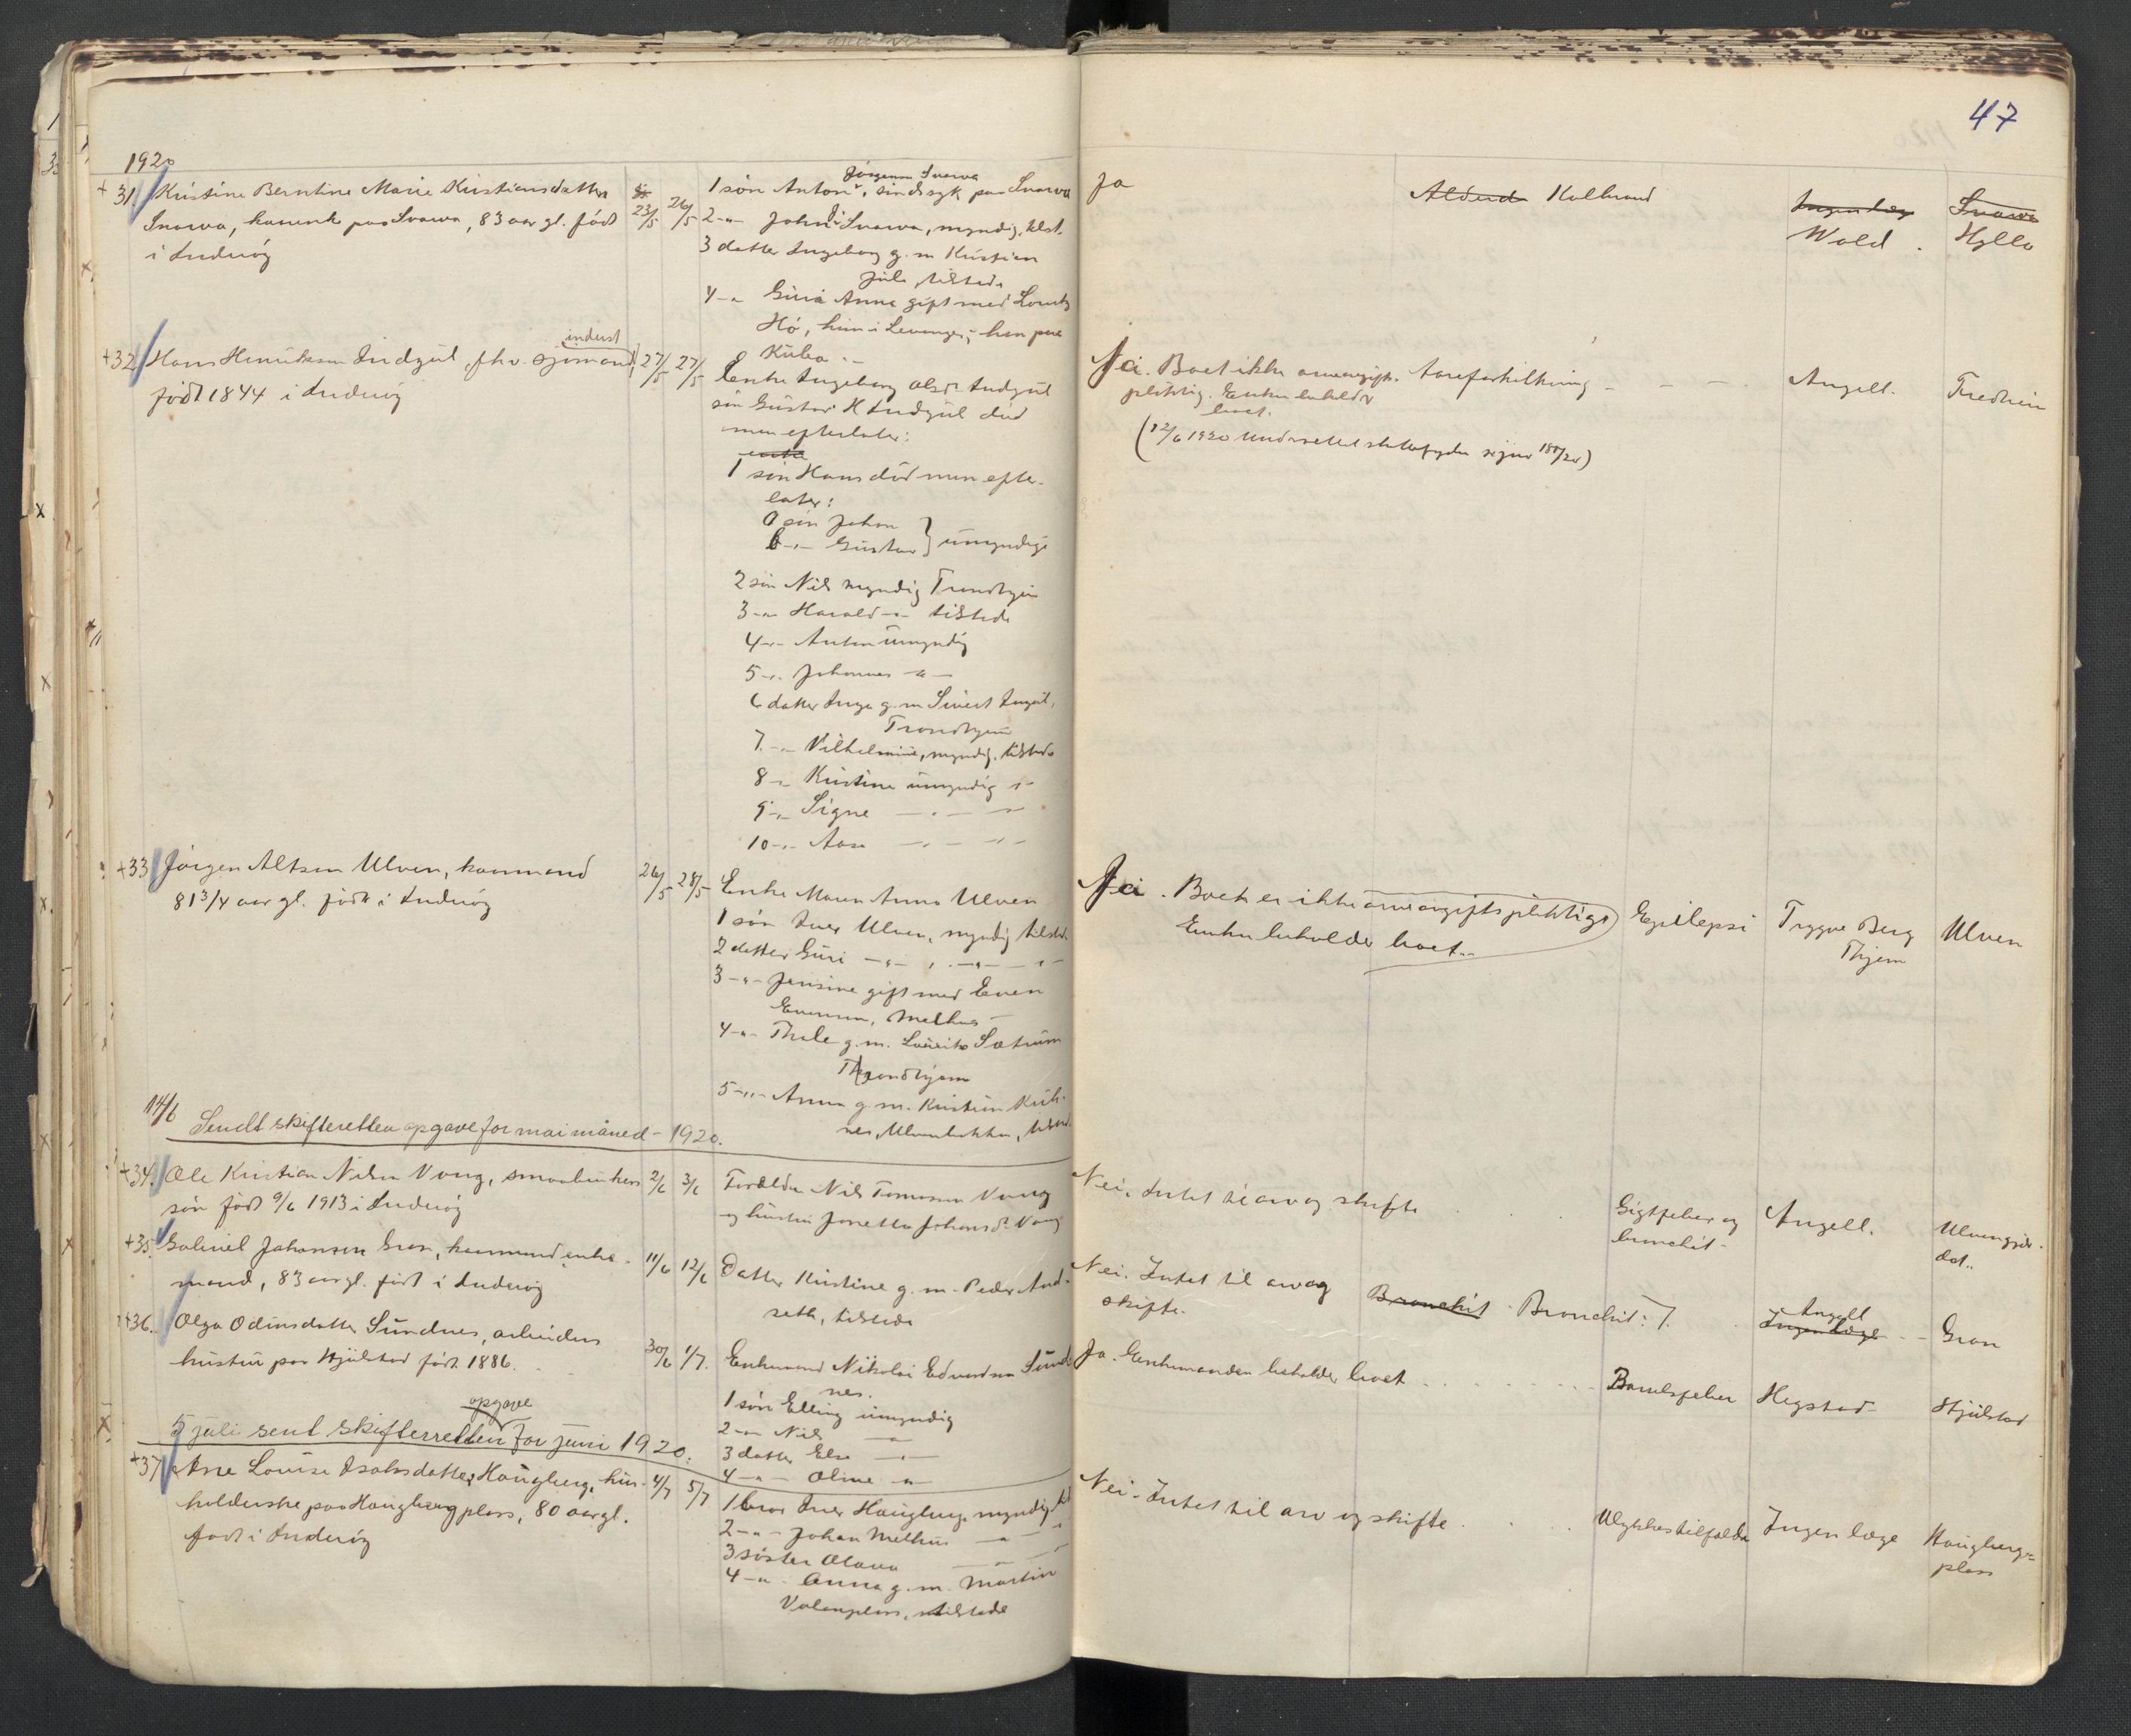 47
1920
+ 31 Kristine Berntine Marie Kristiansdatter
Snarva, kaarenke paa Snarva, 83 aar gl. født
i Inderøy
23/5 26/5
Jørgensen Snarva
1 søn Anton, sindssyk paa Snarva
2 -"- Johan Snarva, myndig, tilst.
3 datter Ingeborg g. m. Kristian
Jule, tilstede
4 -"- Anna gift med
Hø, hun i Levanger, han paa
Kuba.
Ja
Alderd Kolbrand
Ingen læge
Wold
Snarva
Hylla
+32 Hans Henriksen Indgul, fhv. sjømand
inderst
født 1844 i Inderøy
27/5 27/5
Enke Ingeborg Olsdr Indgul
søn Gustav H Indgul død
men efterlater:
enke
1 søn Hans død men efter-
later:
a søn Johan
b -"- Gustav } umyndige
2 søn Nils myndig Trondhjem
3 -"- Harald -"- tilstede
4 -"- Anton umyndig
5 -"- Johannes -"-
6 datter Inga g. m. Sivert
Trondhjem
7 -"- Vilhelmine, myndig, tilstede
8 -"- Kristine umyndig -"-
9 -"- Signe -"- -"-
10 -"- Aase -"- -"-
Nei. Boet ikke arveavgifts-
pliktig. Enken beholder
boet.
Aareforkalkning
(12/6 1920
Angell.
+33 Jørgen Altsen Ulven, kaarmand
81 3/4 aar gl. født i Inderøy
26/5 28/5
Enke Maren Anna Ulven
1 søn Iver Ulven, myndig tilstede
2 datter Guri -"- -"- -"-
3 -"- Jensine gift med Even
Evensen, Melhus
4 -"- Thale g. m. Lauritz Sætrum
Trondhjem
5 -"- Anna g. m. Kristian
Ulvenbakken, tilsted.
Nei. Boet er ikke arveavgiftspliktigt
Enken beholder boet.
Epilepsi
Trygve Berg
Thjem
Ulven
14/6 Sendt skifteretten opgave for mai måned - 1920.
+34. Ole Kristian Nilsen Vang, smaabrukers
søn født 9/6 1913 i Inderøy
2/6 3/6
Forældre Nils Tomassen Vang
og hustru Jonetta Johansdr Vang
Nei. Intet til arv og skifte
Gigtfeber og
bronchit
Angell.
+35. Gabriel Johansen Gran, kaarmand enke-
mand, 83 aar gl. født i Inderøy
11/6 12/6
Datter Kristine g. m. Peder And-
seth, tilstede
Nei. Intet til arv og
skifte.
Bronchit Bronchit: 7.
Angell
Ingen læge
Gran
+36. Olga Odinsdatter Sundnes, arbeiders
hustru paa Hjulstad født 1886.
30/6 1/7.
Enkemand Nikolai Edvardsen Sund-
nes.
1 søn Elling umyndig
2 -"- Nils -"-
3 datter Else -"-
4 -"- Oline -"-
Ja. Enkemanden beholder boet
Barselfeber
Hegstad
Hjulstad
opgave
5 juli sent skifteretten for juni 1920.
+37 Ane Louise Isaksdatter Haugberg, hus-
holderske paa Haugberg plass, 80 aar gl.
født i Inderøy
4/7 5/7
1 bror Iver Haugberg myndig, til
2 -"- Johan Melhus -"-
3 søster Olava -"-
4 -"- Anna g. m. Martin
Valanplass, tilstede
Nei. Intet til arv og skifte
Ulykkestilfælde
Ingen læge
Haugberg=
plass